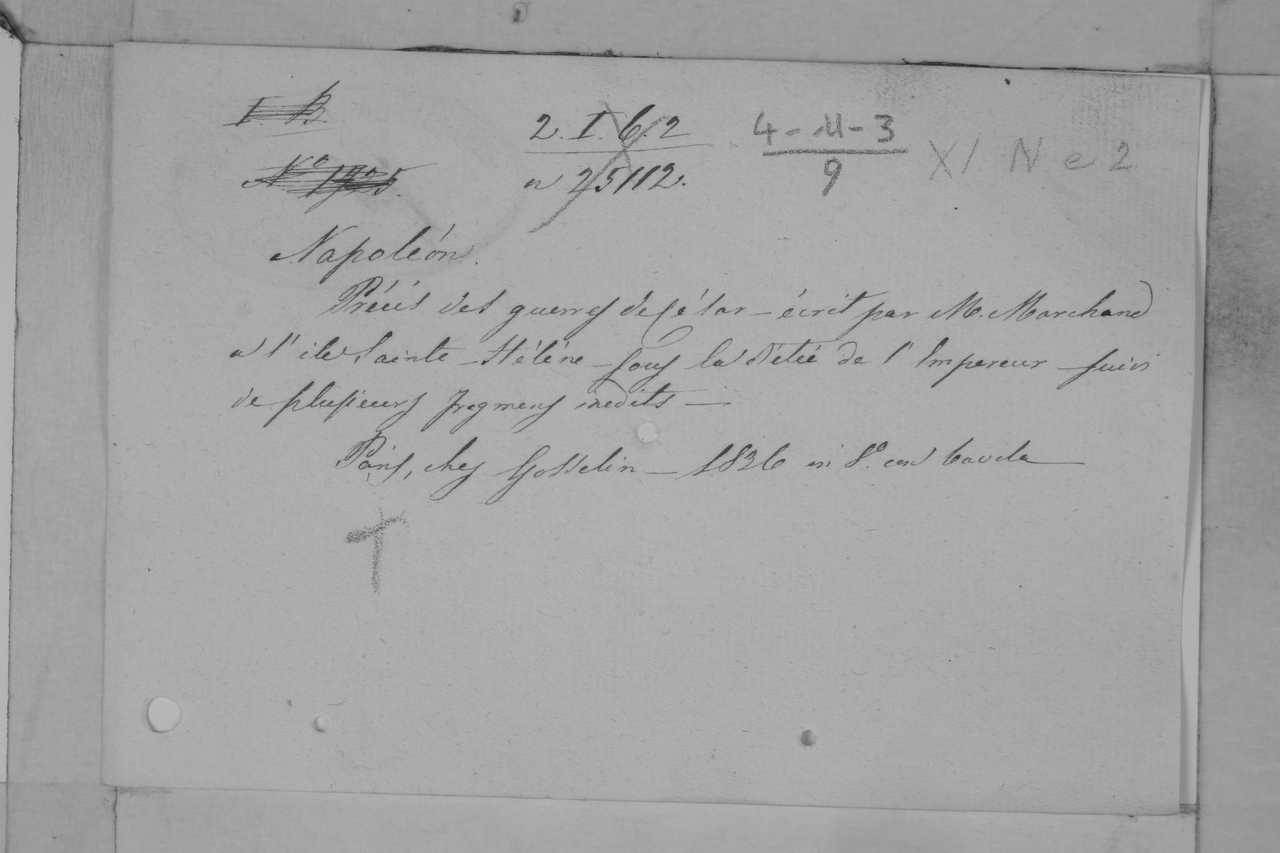 I. B.
2. I. 6. 2
4 - 11 - 3
9
XI N e 2
Nº 1925.
n 25112.
Napoleón.
Précis des guerres de César - écrit par M. Marchand
a l'ile Sainte-Hélène - sous la dictée de l'Empereur - suivi
de plusieurs fragmens inedits -
Paris, chez Gosselin - 1836 in 8º. en